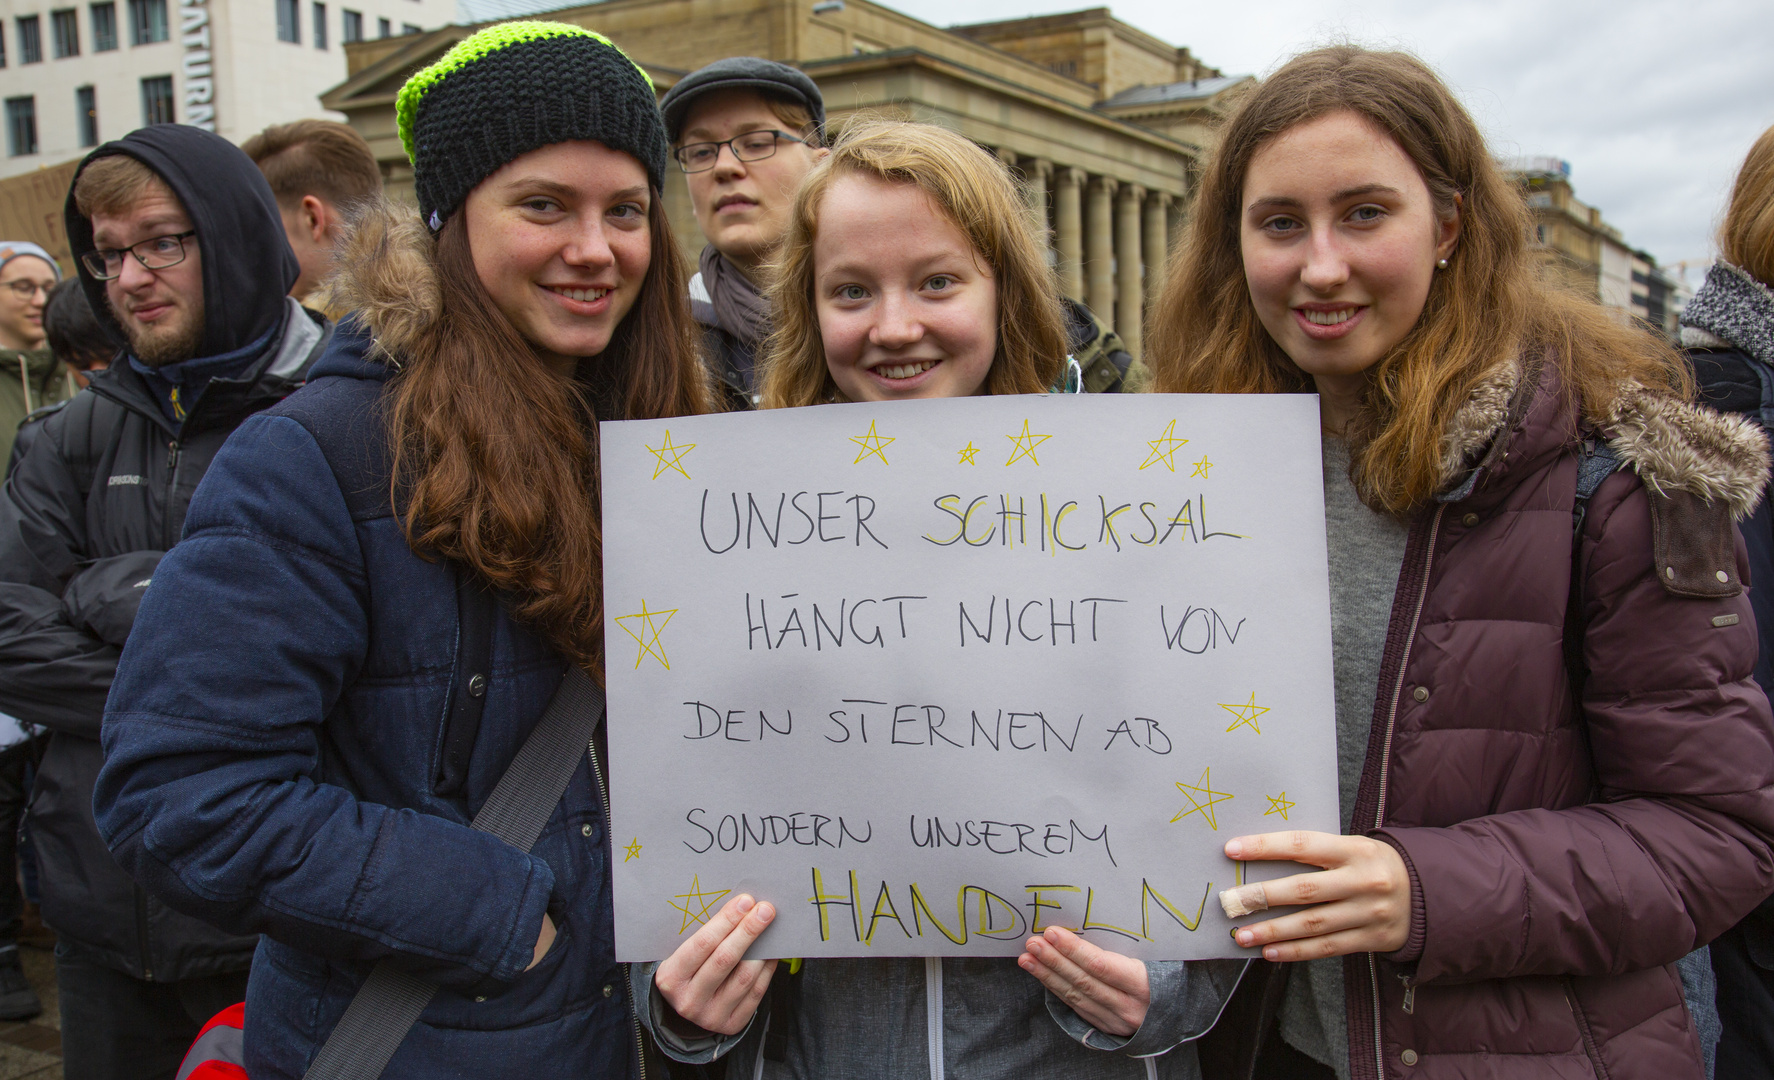 SATURN
UNSER SCHICKSAL
HÄNGT NICHT VON
DEN STERNEN AB
SONDERN UNSEREM
HANDELN!